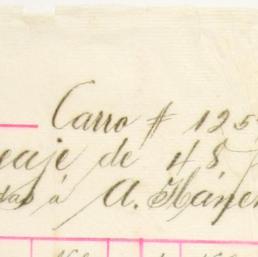 Carro # 125
eaje de 48
das á A. Háne